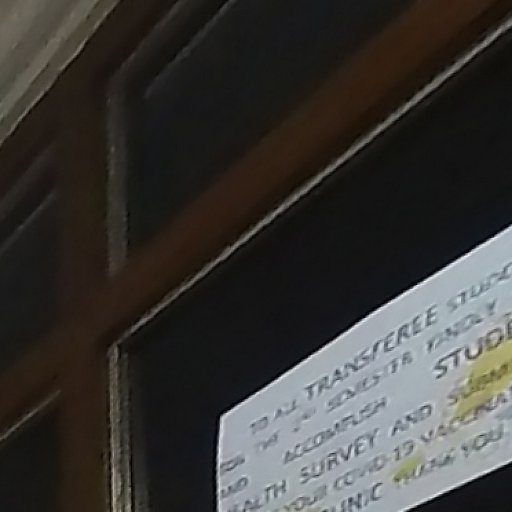 TO ALL TRANSFEREE STUDE
FOR THE 2ND SEMESTER KINDLY
ACCOMPLISH STUDE
HEALTH SURVEY AND SUBMI
YOUR COVID-19 VACCINA
CLINIC THANK YOU